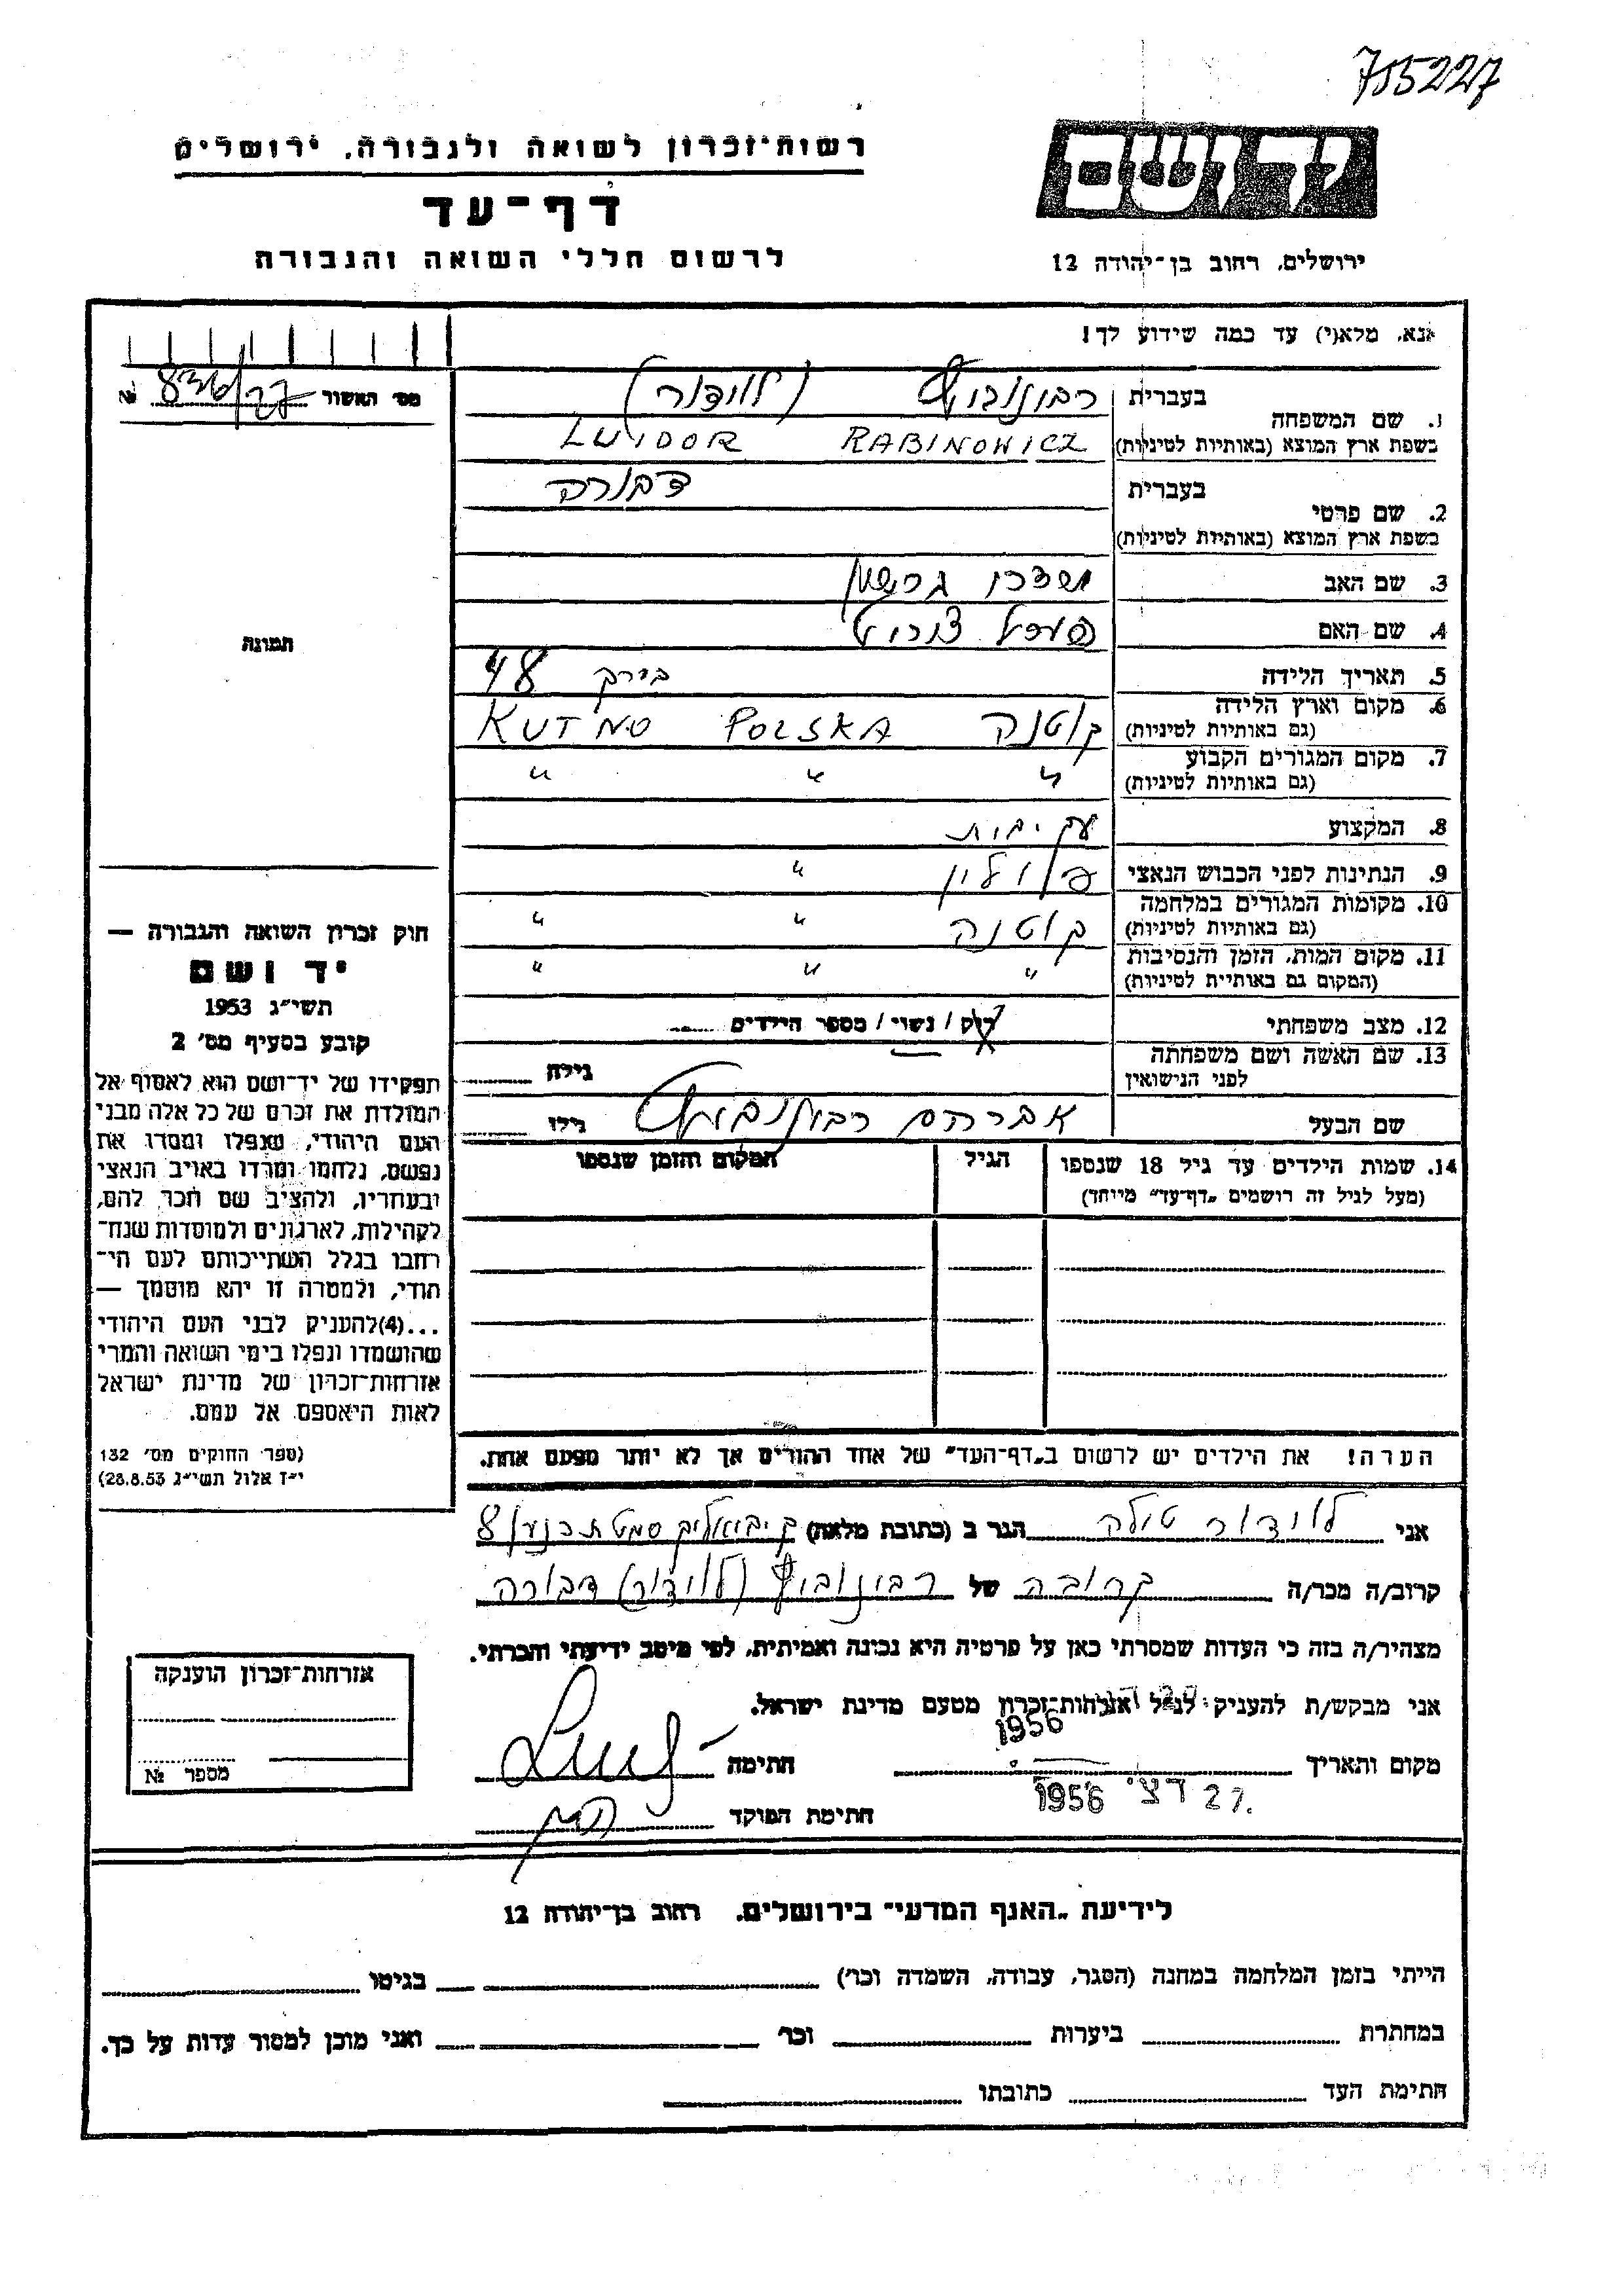 755227
רשות־זכרון לשואה ולגבורה, ירושלים
יד ושם
דף־עד
לרשום חללי השואה והגבורה
ירושלים, רחוב בן־יהודה 12
אנא, מלא(י) עד כמה שידוע לך!
מס׳ האשור 836/27 №
1. שם המשפחה בעברית רבינוביץ (לוידור)
בשפת ארץ המוצא (באותיות לטיניות) LUIDOR RABINOWICZ
2. שם פרטי בעברית דבורה
בשפת ארץ המוצא (באותיות לטיניות)
3. שם האב גרשון
4. שם האם
5. תאריך הלידה בירך 48
6. מקום וארץ הלידה (גם באותיות לטיניות) קוטנה KUTNO POLSKA
7. מקום המגורים הקבוע (גם באותיות לטיניות) " " "
8. המקצוע עק יבות
9. הנתינות לפני הכבוש הנאצי פולין "
10. מקומות המגורים במלחמה (גם באותיות לטיניות) קוטנה " "
11. מקום המות, הזמן והנסיבות (המקום גם באותיות לטיניות) " " "
12. מצב משפחתי רוק / נשוי / מספר הילדים
13. שם האשה ושם משפחתה לפני הנישואין גילה
שם הבעל אברהם רבינוביץ גילו
14. שמות הילדים עד גיל 18 שנספו הגיל המקום והזמן שנספו
(מעל לגיל זה רושמים „דף־עד״ מיוחד)
הערה! את הילדים יש לרשום ב„דף־העד״ של אחד ההורים אך לא יותר מפעם אחת.
תמונה
חוק זכרון השואה והגבורה —
יד ושם
תשי״ג 1953
קובע בסעיף מס׳ 2
תפקידו של יד־ושם הוא לאסוף אל
המולדת את זכרם של כל אלה מבני
העם היהודי, שנפלו ומסרו את
נפשם, נלחמו ומרדו באויב הנאצי
ובעוזריו, ולהציב שם וזכר להם,
לקהילות, לארגונים ולמוסדות שנח־
רבו בגלל השתייכותם לעם הי־
הודי, ולמטרה זו יהא מוסמך —
...(4)להעניק לבני העם היהודי
שהושמדו ונפלו בימי השואה והמרי
אזרחות־זכרון של מדינת ישראל
לאות היאספם אל עמם.
(ספר החוקים מס׳ 132
י״ז אלול תשי״ג 28.8.53)
אני לוידור טולה הגר ב (כתובת מלאה) ק. ביאליק סמטת כנען 8
קרוב/ה מכר/ה קרובה של רבינוביץ (לוידור) דבורה
מצהיר/ה בזה כי העדות שמסרתי כאן על פרטיה היא נכונה ואמיתית, לפי מיטב ידיעתי והכרתי.
אני מבקש/ת להעניק לנ״ל אזרחות־זכרון מטעם מדינת ישראל.
1956
מקום ותאריך חתימה
27. דצ׳ 1956
חתימת הפוקד
אזרחות־זכרון הוענקה
מספר №
לידיעת „האגף המדעי״ בירושלים, רחוב בן־יהודה 12
הייתי בזמן המלחמה במחנה (הסגר, עבודה, השמדה וכו׳) בגיטו
במחתרת ביערות וכו׳ ואני מוכן למסור עדות על כך.
חתימת העד כתובתו